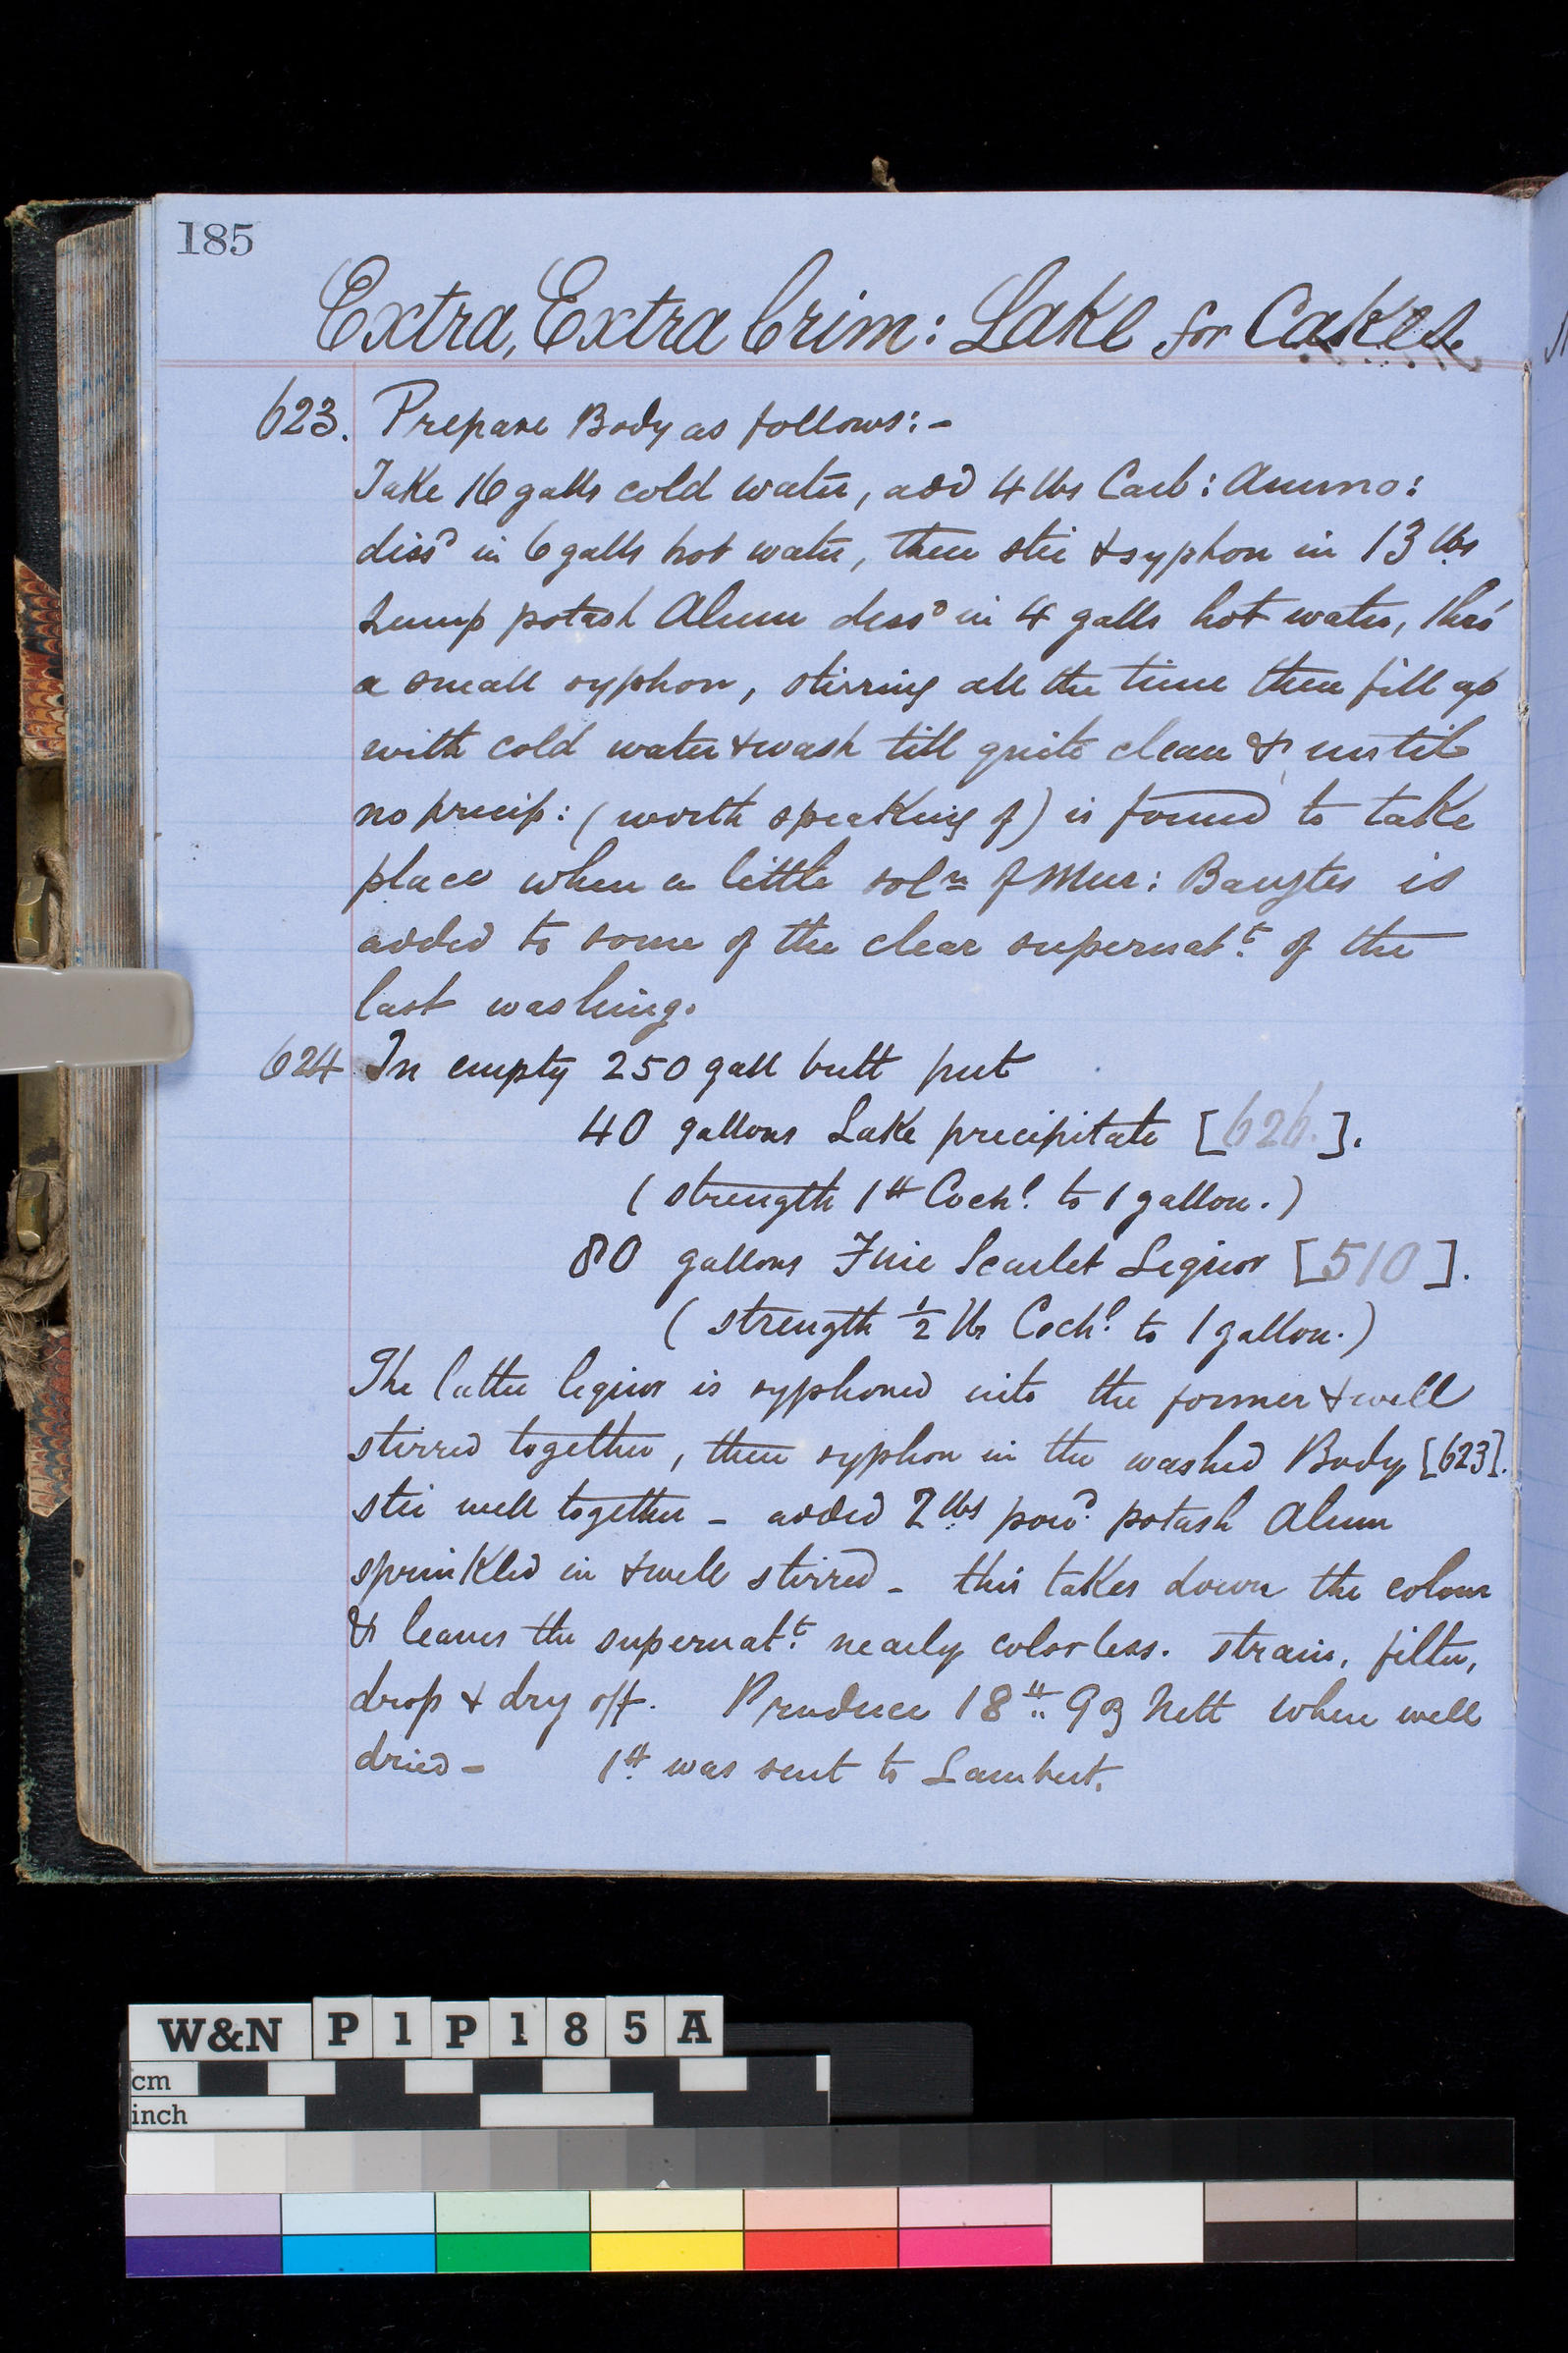 185
Extra, Extra Crim: Lake for Cakes.
623. Prepare Body as follows:-
Take 16 galls cold water, add 4 lbs Carb: Ammo:
dissd in 6 galls hot water, then stir & syphon in 13 lbs
Lump potash Alum dissd in 4 galls hot water, thro'
a small syphon, stirring all the time then fill up
with cold water & wash till quite clean & until
no precip: (worth speaking of) is found to take
place when a little soln of Mur: Barytes is
added to some of the clear supernatt. of the
last washing.
624 In empty 250 gall butt put
40 gallons Lake precipitate [626.].
(strength 1 lb Cochl. to 1 gallon.)
80 gallons Fine Scarlet Liquor [510].
(strength ½ lb Cochl. to 1 gallon.)
The latter liquor is syphoned into the former & well
stirred together, then syphon in the washed Body [623].
stir well together - added 2 lbs powd. potash Alum
sprinkled in & well stirred - this takes down the colour
& leaves the supernatt. nearly colorless. strain, filter,
drop & dry off. Produce 18 lb 9 oz Nett when well
dried - 1 lb was sent to Lambert.
W&N P1P185A
cm
inch